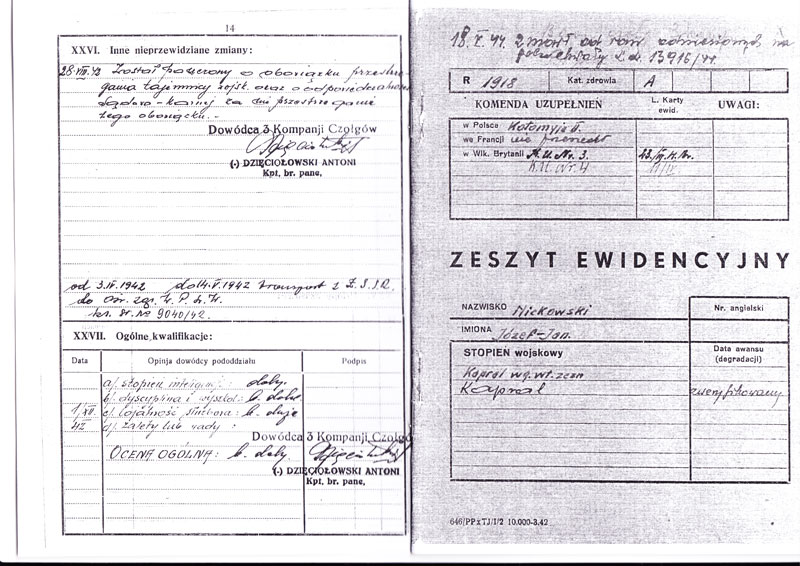 14
XXVI. Inne nieprzewidziane zmiany:
28.VIII.42 Został pouczony o obowiązku przestrze-
gania tajemnicy wojsk. oraz o odpowiedzialności
sądowo-karnej za nie przestrzeganie
tego obowiązku.-
Dowódca 3 Kompanji Czołgów
(-) DZIĘCIOŁOWSKI ANTONI
Kpt, br. panc,
od 3.IV.1942 do 14.V.1942 transport z Z.S.S.R.
do
roz. St. No 9040/42.
XXVII. Ogólne kwalifikacje:
Data
Opinja dowódcy pododdziału
Podpis
a/. stopień inteligencji: dobry.
b/. dyscyplina i wyszkol: b. dobre
1/XII. c/. lojalność służbowa: b. duża
42 d/. zalety lub wady:
Dowódca 3 Kompanji Czołgó
OCENA OGÓLNA: b. dobry.
(-) DZIĘCIOŁOWSKI ANTONI
Kpt, br. panc,
18.V.44. zmarł od ran odniesionych na
polu chwały L.dz. 13916/44.
R 1918
Kat. zdrowia A
KOMENDA UZUPEŁNIEŃ
L. Karty ewid.
UWAGI:
w Polsce Kołomyja II.
we Francji nie
w Wlk. Brytanji K.U. Nr. 3.
K.U. Nr 4
ZESZYT EWIDENCYJNY
NAZWISKO Mickowski
Nr. angielski
IMIONA Józef-Jan.
STOPIEŃ wojskowy
Data awansu
(degradacji)
Kapral wg. wł. zezn
Kapral zweryfikowany
646/PPzTJ/I/2 10.000-3.42